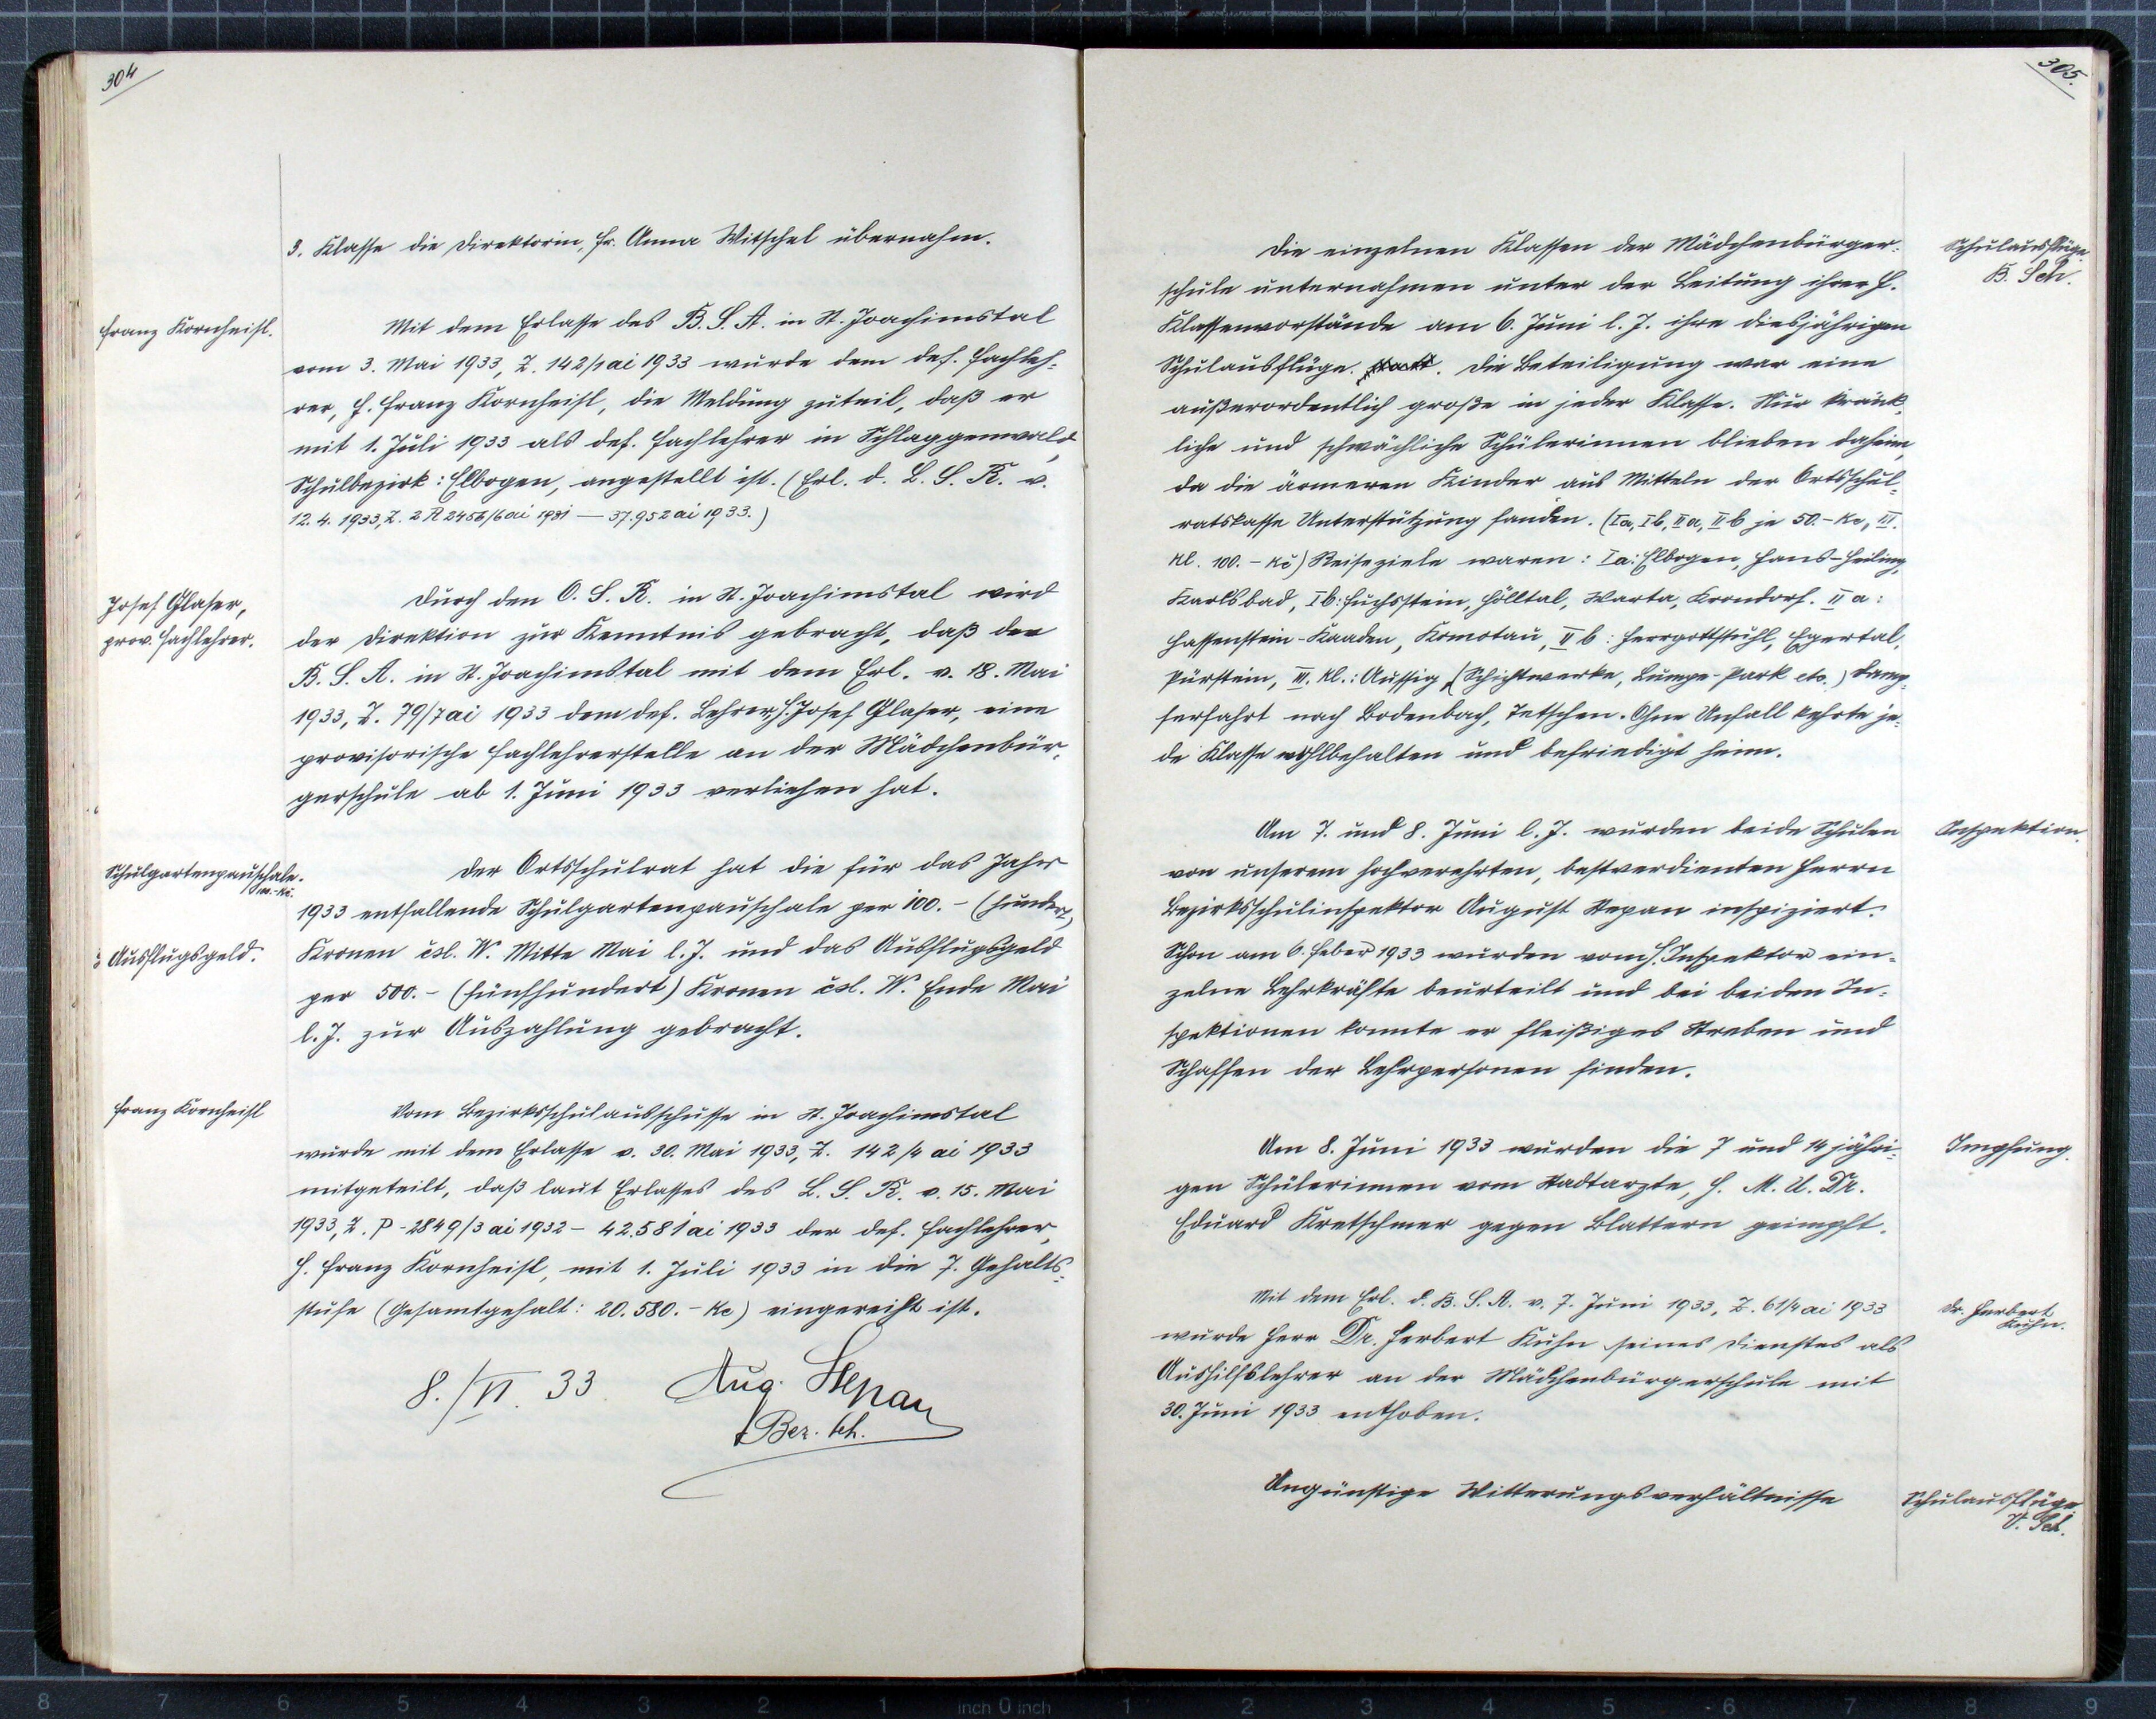 304
3. Klasse die Direktorin, Fr. Anna Witschel übernahm.
Franz Kornheisl.
Mit dem Erlasse des B. S. A. in St. Joachimstal
vom 3. Mai 1933, Z. 142/1 ai 1933 wurde dem def. Fachleh-
rer, H. Franz Kornheisl, die Meldung zuteil, daß er
mit 1. Juli 1933 als def. Fachlehrer in Schlaggenwald,
Schulbezirk: Elbogen, angestellt ist. (Erl. d. L. S. R. v.
12. 4. 1933, Z. 2 R 2456/6 ai 1931 — 37.952 ai 1933.)
Josef Glaser,
prov. Fachlehrer.
Durch den O. S. R. in St. Joachimstal wird
der Direktion zur Kenntnis gebracht, daß der
B. S. A. in St. Joachimstal mit dem Erl. v. 18. Mai
1933, Z. 79/7 ai 1933 dem def. Lehrer, H. Josef Glaser, eine
provisorische Fachlehrerstelle an der Mädchenbür-
gerschule ab 1. Juni 1933 verliehen hat.
Schulgartenpauschale.
Der Ortsschulrat hat die für das Jahr
1933 entfallende Schulgartenpauschale per 100.- (hundert)
Ausflugsgeld.
Kronen čsl. W. Mitte Mai l. J. und das Ausflugsgeld
per 500.- (fünfhundert) Kronen čsl. W. Ende Mai
l. J. zur Auszahlung gebracht.
Franz Kornheisl
Vom Bezirksschulausschusse in St. Joachimstal
wurde mit dem Erlasse v. 30. Mai 1933, Z. 142/4 ai 1933
mitgeteilt, daß laut Erlasses des L. S. R. v. 15. Mai
1933, Z. P - 2849/3 ai 1932 - 42.581 ai 1933 der def. Fachlehrer,
H. Franz Kornheisl, mit 1. Juli 1933 in die 7. Gehalts-
stufe (Gesamtgehalt: 20.580.- Kc) eingereiht ist.
8./VI. 33. Aug. Stepan
Bez. Sch.
305.
Schulausflüge
B. Sch.
Die einzelnen Klassen der Mädchenbürger-
schule unternahmen unter der Leitung ihrer H.
Klassenvorstände am 6. Juni l. J. ihre diesjährigen
Schulausflüge. Die Beteiligung war eine
außerordentlich große in jeder Klasse. Nur kränk-
liche und schwächliche Schülerinnen blieben daheim,
da die ärmeren Kinder aus Mitteln der Ortsschul-
ratskasse Unterstützung fanden. (Ia, Ib, IIa, IIb je 50.- Kc, III.
Kl. 100.- Kč) Reiseziele waren: Ia: Elbogen, Hans-Heiling,
Karlsbad, Ib: Fuchsstein, Hölltal, Warta, Krondorf. IIa:
Hassenstein-Kaaden, Komotau, IIb: Herrgottstuhl, Egertal,
Pürstein, III. Kl.: Aussig, (Schichtwerke, Lumpe-Park etc.) Damp-
ferfahrt nach Bodenbach, Tetschen. Ohne Unfall kehrte je-
de Klasse wohlbehalten und befriedigt heim.
Inspektion.
Am 7. und 8. Juni l. J. wurden beide Schulen
von unserem hochverehrten, bestverdienten Herrn
Bezirksschulinspektor August Stepan inspiziert.
Schon am 6. Feber 1933 wurden vom H. Inspektor ein-
zelne Lehrkräfte beurteilt und bei beiden In-
spektionen konnte er fleißiges Streben und
Schaffen der Lehrpersonen finden.
Impfung.
Am 8. Juni 1933 wurden die 7 und 14 jähri-
gen Schülerinnen vom Stadtarzte, H. M. U. Dr.
Eduard Kretschmer gegen Blattern geimpft.
Dr. Herbert
Kuhn.
Mit dem Erl. d. B. S. A. v. 7. Juni 1933, Z. 61/4 ai 1933
wurde Herr Dr. Herbert Kuhn seines Dienstes als
Aushilfslehrer an der Mädchenbürgerschule mit
30. Juni 1933 enthoben.
Schulausflüge
V. Sch.
Ungünstige Witterungsverhältnisse
8 7 6 5 4 3 2 1 inch 0 inch 1 2 3 4 5 6 7 8 9